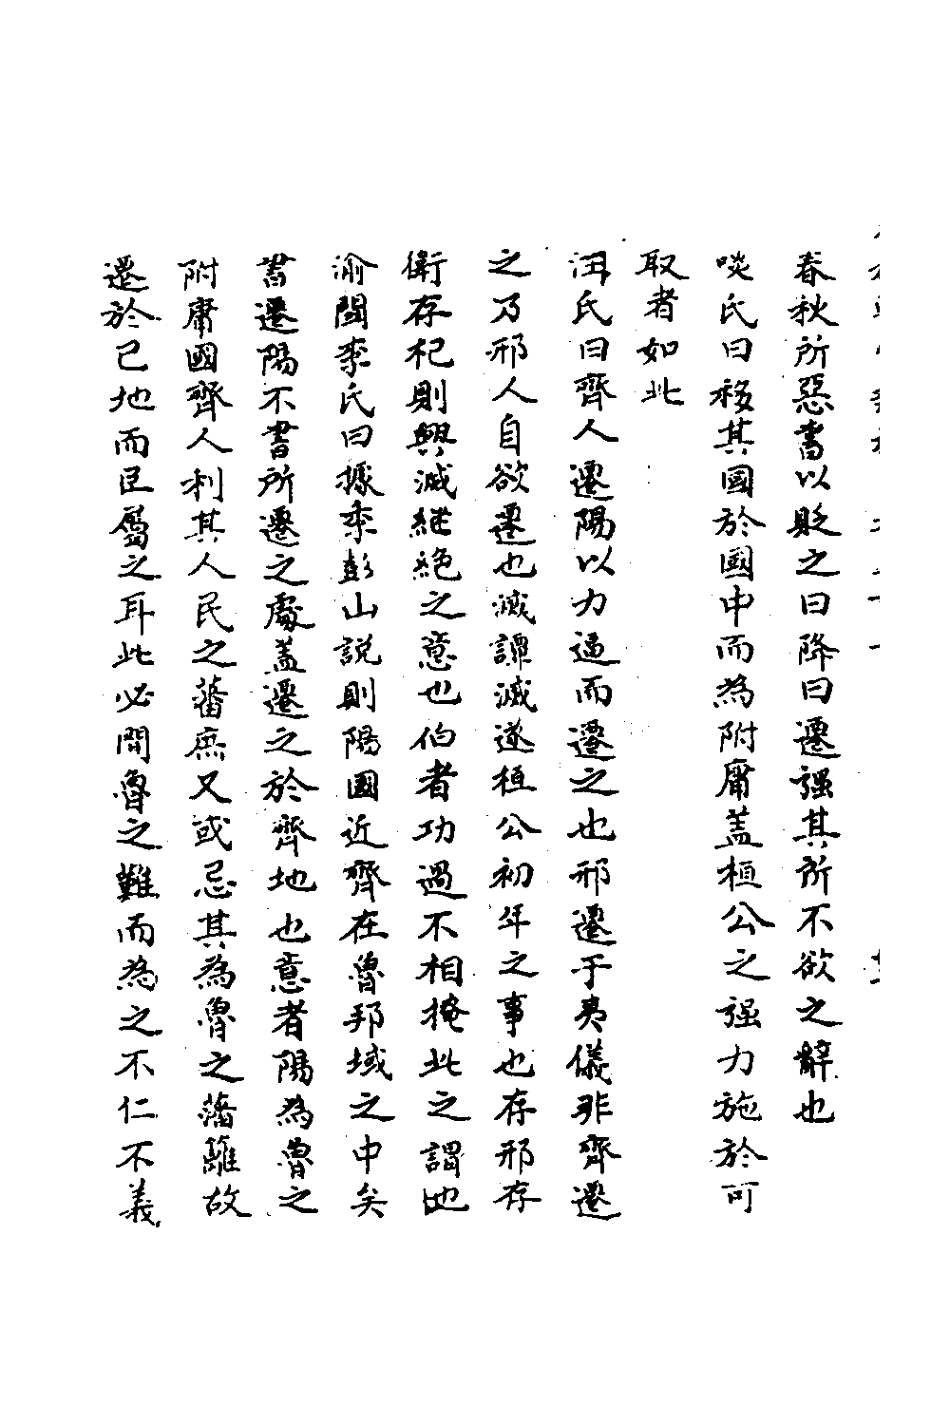 春秋所惡書以貶之曰降曰遷强其所不欲之辭也
啖氏曰移其國於國中而為附庸蓋桓公之强力施於可
取者如此
汪氏曰齊人遷陽以力逼而遷之也邢遷于夷儀非齊遷
之乃邢人自欲遷也滅譚滅遂桓公初年之事也存邢存
衛存杞則興滅繼絕之意也伯者功過不相掩此之謂也
渝關李氏曰據季彭山說則陽國近齊在魯邦域之中矣
書遷陽不書所遷之處蓋遷之於齊地也意者陽為魯之
附庸國齊人利其人民之蕃庶又或忌其為魯之藩籬故
遷於己地而臣屬之耳此必間魯之難而為之不仁不義